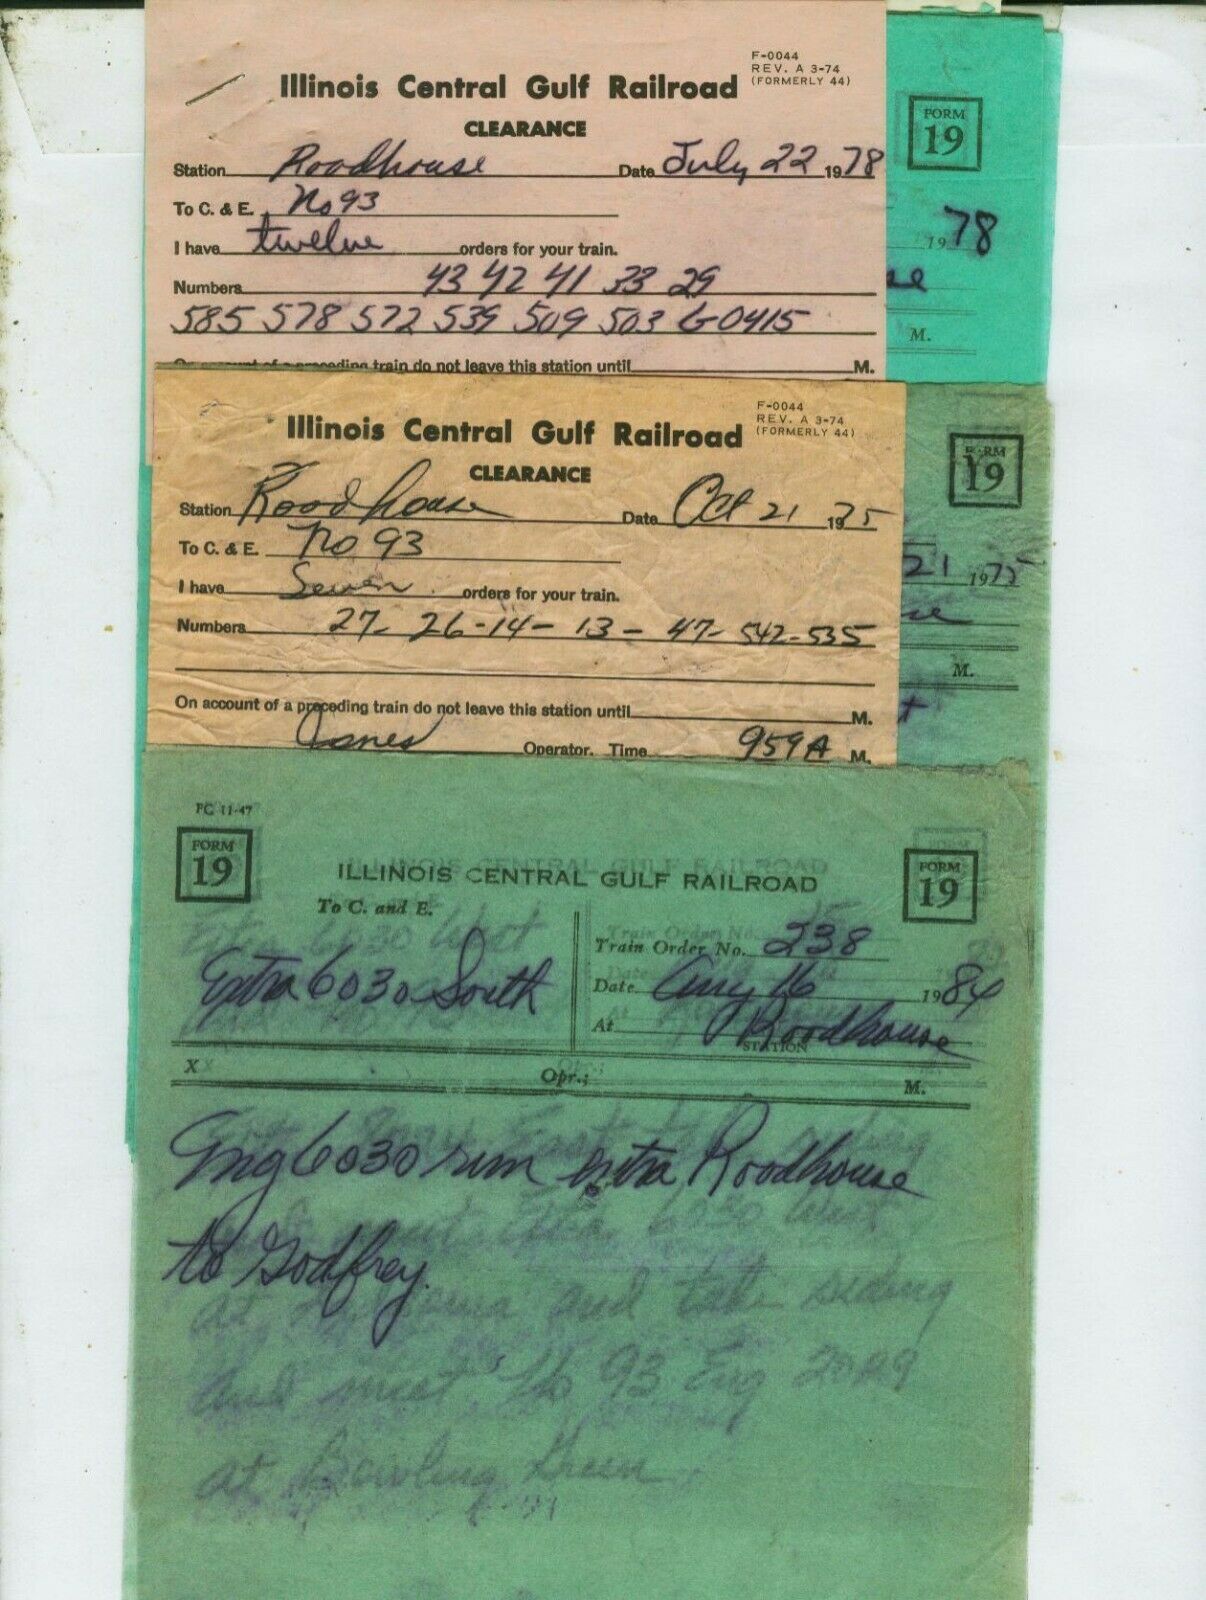 F-0044
REV. A 3-74
(FORMERLY 44)
Illinois Central Gulf Railroad
CLEARANCE
Station Roodhouse Date July 22 1978
To C. & E. No 93
I have twelve orders for your train.
Numbers 43 42 41 33 29
585 578 572 539 509 503 G0415
train do not leave this station until M.
FORM
19
1978
M.
F-0044
REV. A 3-74
(FORMERLY 44)
Illinois Central Gulf Railroad
CLEARANCE
Station Roodhouse Date Oct 21 1975
To C. & E. No 93
I have Seven orders for your train.
Numbers 27- 26-14- 13- 47- 542-535
On account of a preceding train do not leave this station until M.
Jones Operator. Time 959A M.
FORM
19
21 1975
M.
FORM
19
ILLINOIS CENTRAL GULF RAILROAD
FORM
19
To C. and E.
Extra 6030 South
Train Order No. 238
Date Aug 16 1984
At Roodhouse
STATION
X Opr.; M.
Eng 6030 run extra Roodhouse
to Godfrey.
and take siding
and meet No 93 Eng 2029
at Bowling Green